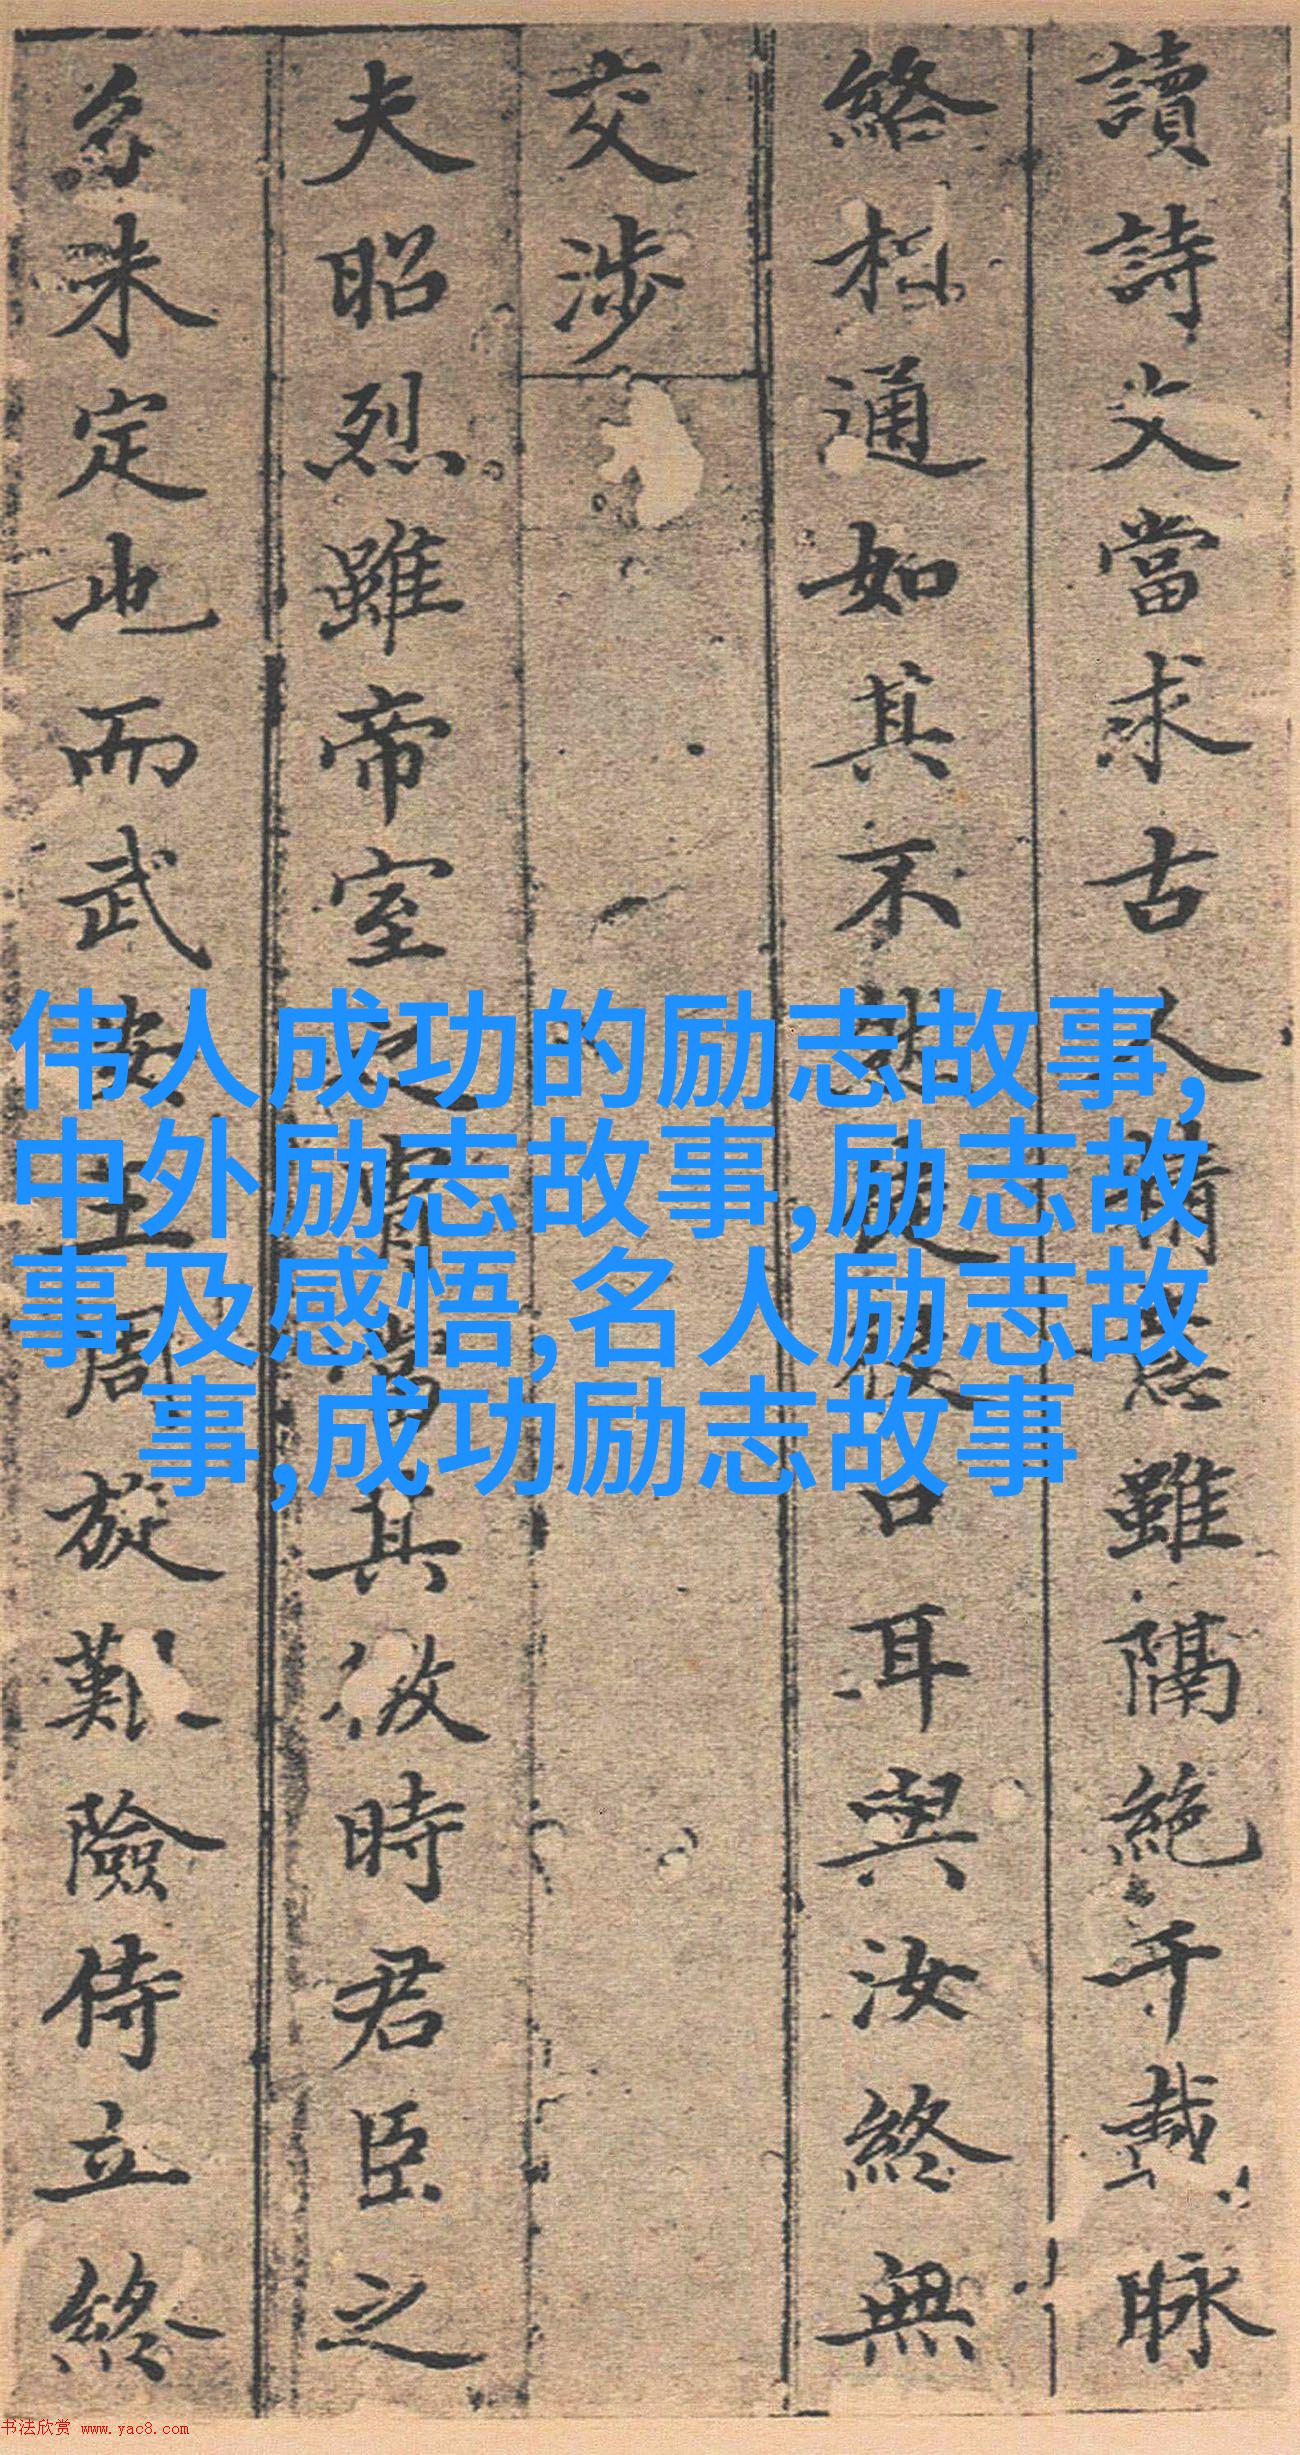 讀詩文當求古人意雖隔絕千載脉
絡相通如其不口耳與汝終無
交涉
夫昭烈雖帝室之胄當其微時君臣之
分未定也而武安王周旋難險侍立終
伟人成功的励志故事,
中外励志故事,励志故
事及感悟,名人励志故
事,成功励志故事
书法欣赏 www.yac8.com